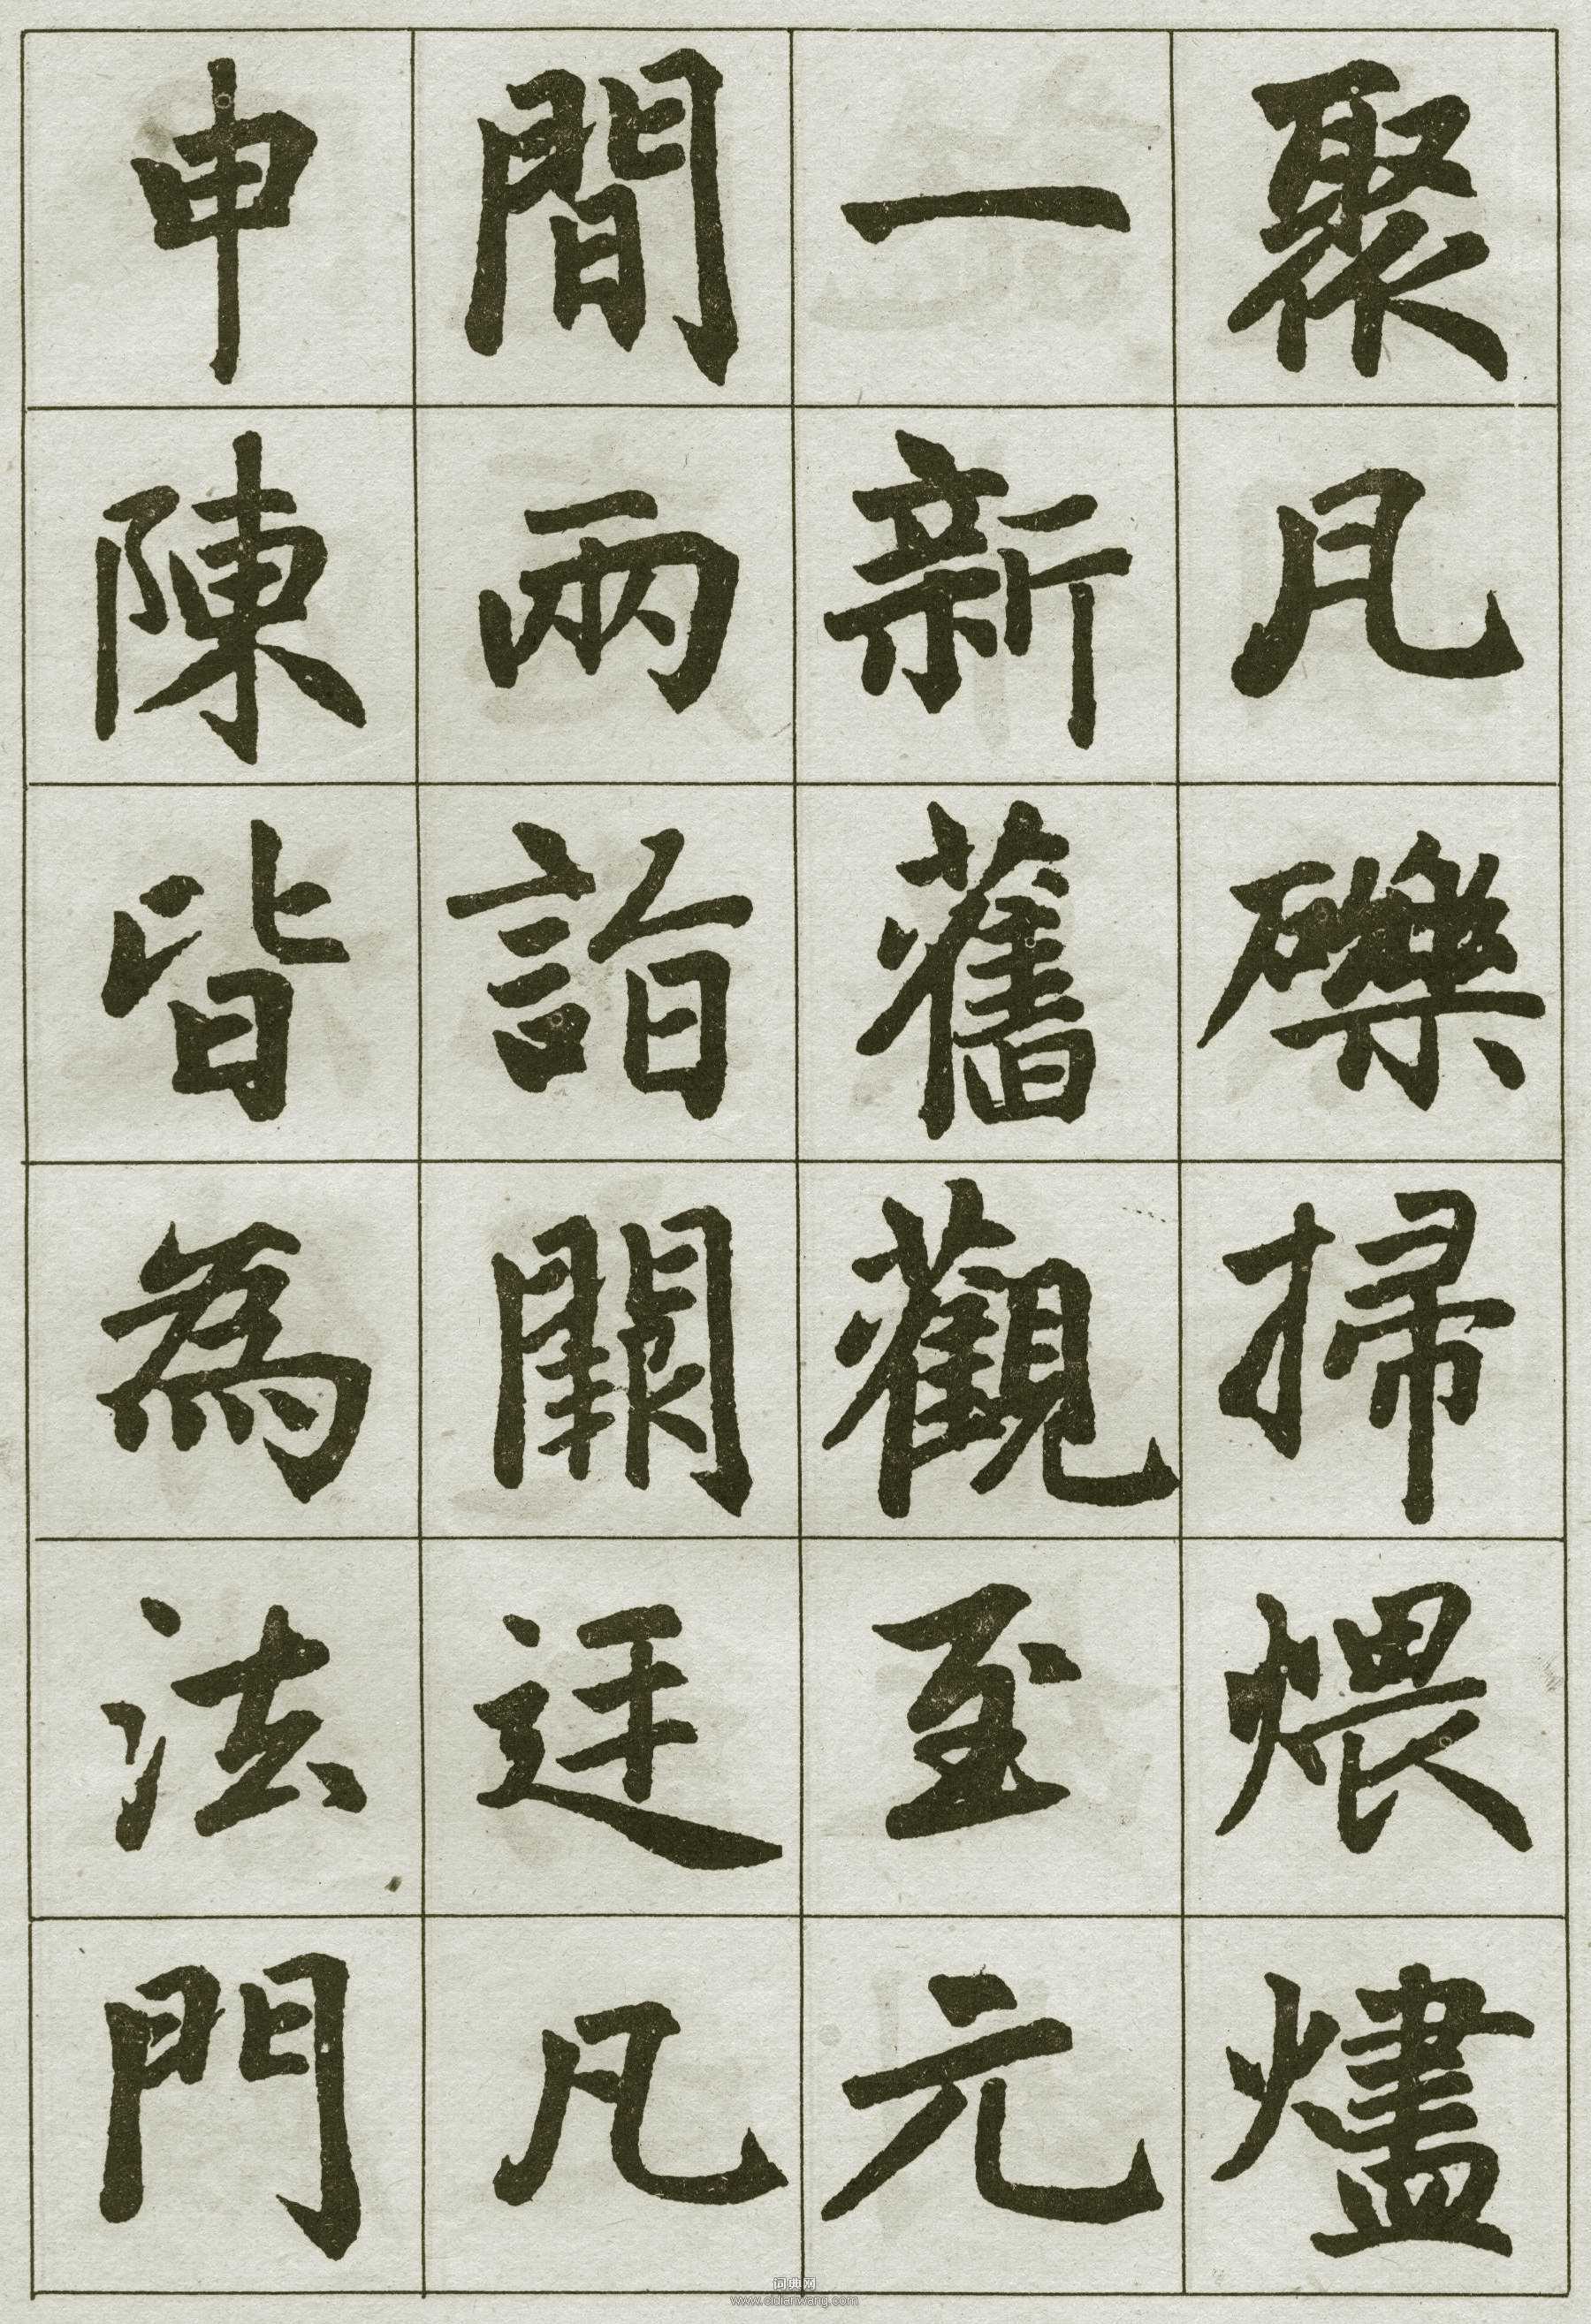 聚瓦礫掃煨燼
一新舊觀至元
間兩詣闕廷凡
申陳皆為法門
词典网
www.cidianwang.com